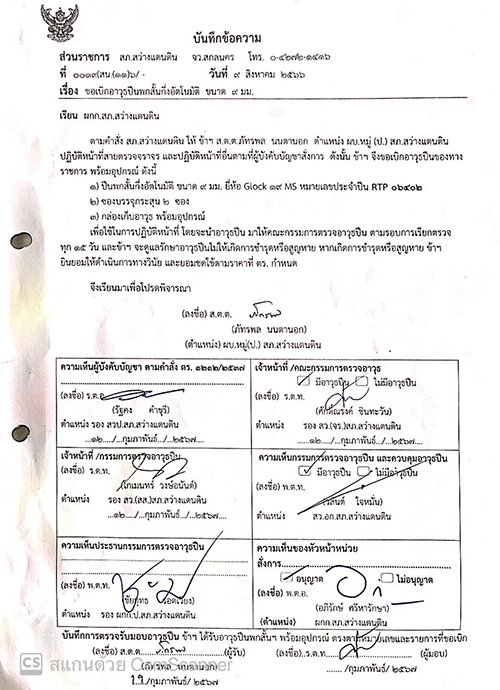 บันทึกข้อความ
ส่วนราชการ สภ.สว่างแดนดิน จว.สกลนคร โทร. ๐-๔๒๗๒-๑๔๑๖
ที่ ๐๐๑๙(สน.(๑๑)๖/- วันที่ ๙ สิงหาคม ๒๕๖๖
เรื่อง ขอเบิกอาวุธปืนพกสั้นกึ่งอัตโนมัติ ขนาด ๙ มม.
เรียน ผกก.สภ.สว่างแดนดิน
ตามคำสั่ง สภ.สว่างแดนดิน ให้ ข้าฯ ส.ต.ต.ภัทรพล นนตานอก ตำแหน่ง ผบ.หมู่ (ป.) สภ.สว่างแดนดิน
ปฏิบัติหน้าที่สายตรวจจราจร และปฏิบัติหน้าที่อื่นตามที่ผู้บังคับบัญชาสั่งการ ดังนั้น ข้าฯ จึงขอเบิกอาวุธปืนของทาง
ราชการ พร้อมอุปกรณ์ ดังนี้
๑) ปืนพกสั้นกึ่งอัตโนมัติ ขนาด ๙ มม. ยี่ห้อ Glock ๑๙ MS หมายเลขประจำปืน RTP ๐๖๔๐๒
๒) ซองบรรจุกระสุน ๒ ซอง
๓) กล่องเก็บอาวุธ พร้อมอุปกรณ์
เพื่อใช้ในการปฏิบัติหน้าที่ โดยจะนำอาวุธปืน มาให้คณะกรรมการตรวจอาวุธปืน ตามรอบการเรียกตรวจ
ทุก ๑๕ วัน และข้าฯ จะดูแลรักษาอาวุธปืนไม่ให้เกิดการชำรุดหรือสูญหาย หากเกิดการชำรุดหรือสูญหาย ข้าฯ
ยินยอมให้ดำเนินการทางวินัย และยอมชดใช้ตามราคาที่ ตร. กำหนด
จึงเรียนมาเพื่อโปรดพิจารณา
(ลงชื่อ) ส.ต.ต.
(ภัทรพล นนตานอก)
(ตำแหน่ง) ผบ.หมู่(ป.) สภ.สว่างแดนดิน
ความเห็นผู้บังคับบัญชา ตามคำสั่ง ตร. ๑๒๑๒/๒๕๓๗
(ลงชื่อ) ร.ต.อ.
(รัฐคง คำบุรี)
ตำแหน่ง รอง สวป.สภ.สว่างแดนดิน
....๑๒...../...กุมภาพันธ์.../...๒๕๖๗....
เจ้าหน้าที่ /คณะกรรมการตรวจอาวุธ
มีอาวุธปืน ไม่มีอาวุธปืน
(ลงชื่อ) ร.ต.ท.
(ศักดิ์ณรงค์ ชินทะวัน)
ตำแหน่ง รอง สว.(จร.)สภ.สว่างแดนดิน
.....๑๒..../...กุมภาพันธ์.../...๒๕๖๗...
เจ้าหน้าที่ /กรรมการตรวจอาวุธปืน
(ลงชื่อ) ร.ต.ท.
(โกเมนทร์ วงษ์อนันต์)
ตำแหน่ง รอง สว.(สส.)สภ.สว่างแดนดิน
....๑๒..../...กุมภาพันธ์.../...๒๕๖๗...
ความเห็นกรรมการตรวจอาวุธปืน และควบคุมอาวุธปืน
มีอาวุธปืน ไม่มีอาวุธปืน
(ลงชื่อ) พ.ต.ท.
ใจหมั่น)
ตำแหน่ง สว.อก.สภ.สว่างแดนดิน
ความเห็นประธานกรรมการตรวจอาวุธปืน
(ลงชื่อ) พ.ต.ท.
ตำแหน่ง รอง ผกก.ป.สภ.สว่างแดนดิน
ความเห็นของหัวหน้าหน่วย
สั่งการ
อนุญาต ไม่อนุญาต
(ลงชื่อ) พ.ต.อ.
(อภิรักษ์ ศรีหารักษา)
(ตำแหน่ง) ผกก.สภ.สว่างแดนดิน
บันทึกการตรวจรับมอบอาวุธปืน ข้าฯ ได้รับอาวุธปืนพกสั้นฯ พร้อมอุปกรณ์ ตรงตามหมายเลขและรายการที่ขอเบิก
(ลงชื่อ) ส.ต.ต. (ผู้รับ) (ลงชื่อ)..ร.ต.ท. (ผู้มอบ)
นนตานอก)
/กุมภาพันธ์ /๒๕๖๗ ....... /กุมภาพันธ์ /๒๕๖๗
CS สแกนด้วย CamScanner